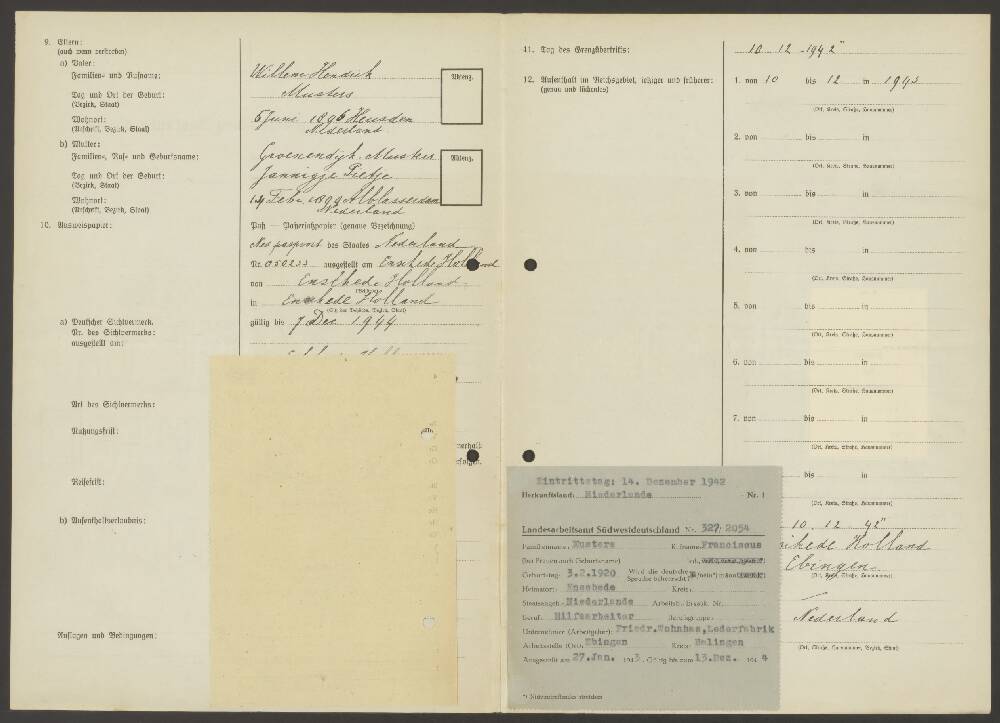 9. Eltern:
(auch wenn verstorben)
a) Vater:
Familien- und Rufname:
Willem Hendrik
Musters
Ahnenz.
Tag und Ort der Geburt:
(Bezirk, Staat)
5 Juni 1896 Heusden
Nederland
Wohnort:
(Anschrift, Bezirk, Staat)
b) Mutter:
Familien-, Ruf- und Geburtsname:
Groenendijk. Musters
Jannigje Pietje
Ahnenz.
Tag und Ort der Geburt:
(Bezirk, Staat)
14 Febr. 1899 Alblasserdam
Nederland
Wohnort:
(Anschrift, Bezirk, Staat)
10. Ausweispapier:
Paß — Paßersatzpapier (genaue Bezeichnung)
paspoort des Staates Nederland
Nr. 050233 ausgestellt am Enschede Holland
von Enschede Holland
(Behörde)
in Enschede Holland
(Sitz der Behörde, Bezirk, Staat)
gültig bis 7 Dec 1944
a) Deutscher Sichtvermerk.
Nr. des Sichtvermerks:
ausgestellt am:
Art des Sichtvermerks:
Nutzungsfrist:
Reisefrist:
b) Aufenthaltserlaubnis:
Auflagen und Bedingungen:
11. Tag des Grenzübertritts:
10 12 -1942"
12. Aufenthalt im Reichsgebiet, jetziger und früherer:
(genau und lückenlos)
1. von 10 bis 12 in 1942
(Ort, Kreis, Straße, Hausnummer)
2. von bis in
(Ort, Kreis, Straße, Hausnummer)
3. von bis in
(Ort, Kreis, Straße, Hausnummer)
4. von bis in
(Ort, Kreis, Straße, Hausnummer)
5. von bis in
(Ort, Kreis, Straße, Hausnummer)
6. von bis in
(Ort, Kreis, Straße, Hausnummer)
7. von bis in
(Ort, Kreis, Straße, Hausnummer)
bis in
(Ort, Kreis, Straße, Hausnummer)
10 12 42"
Holland
Ebingen
Nederland
(Ort, Straße, Hausnummer, Bezirk, Staat)
Eintrittstag: 14. Dezember 1942
Herkunftsland: Niederlande Nr. 1
Landesarbeitsamt Südwestdeutschland Nr. 327/2054
Familienname: Musters Rufname: Franciscus
(bei Frauen auch Geburtsname)
Geburtstag: 3.2.1920 Wird die deutsche Sprache beherrscht?
Heimatort: Enschede Kreis:
Staatsangeh. Niederlande Arbeitsb. Nr.
Beruf: Hilfsarbeiter Berufsgruppe:
Unternehmer (Arbeitgeber): Friedr. Wohnhas, Lederfabrik
Arbeitsstelle (Ort): Ebingen Kreis: Balingen
Ausgestellt am 27. Jan. 1943. Gültig bis zum 13. Dez. 1944
*) Nichtzutreffendes streichen